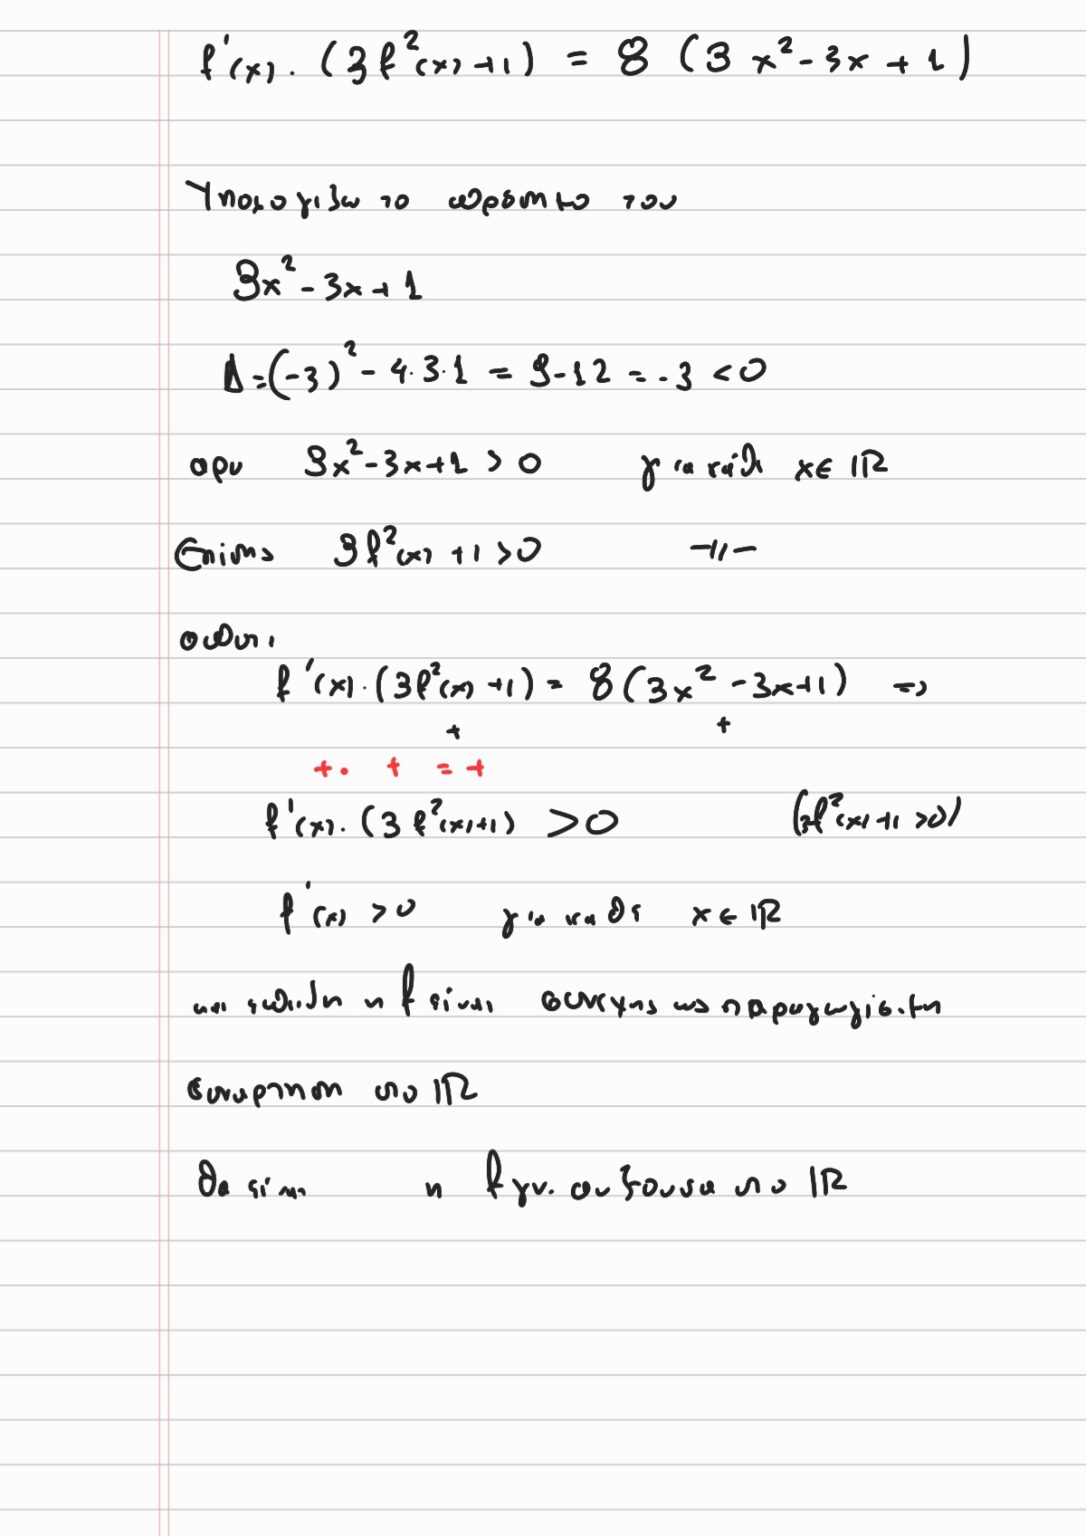 f'(x) . (3f²(x) +1) = 8 (3x² - 3x + 1)
Υπολογιζω το προσημο του
3x² - 3x + 1
Δ = (-3)² - 4·3·1 = 9 - 12 = -3 < 0
αρα 3x² - 3x + 1 > 0 για κάθε x ∈ ℝ
Επίσης 3f²(x) + 1 > 0 -//-
οποτε
f'(x) . (3f²(x) +1) = 8 (3x² - 3x + 1) =>
+ +
+ . + = +
f'(x) . (3f²(x)+1) > 0 (3f²(x)+1 > 0)
f'(x) > 0 για καθε x ∈ ℝ
και επειδη η f είναι συνεχης ως παραγωγισιμη
συναρτηση στο ℝ
θα είναι η f γν. αυξουσα στο ℝ